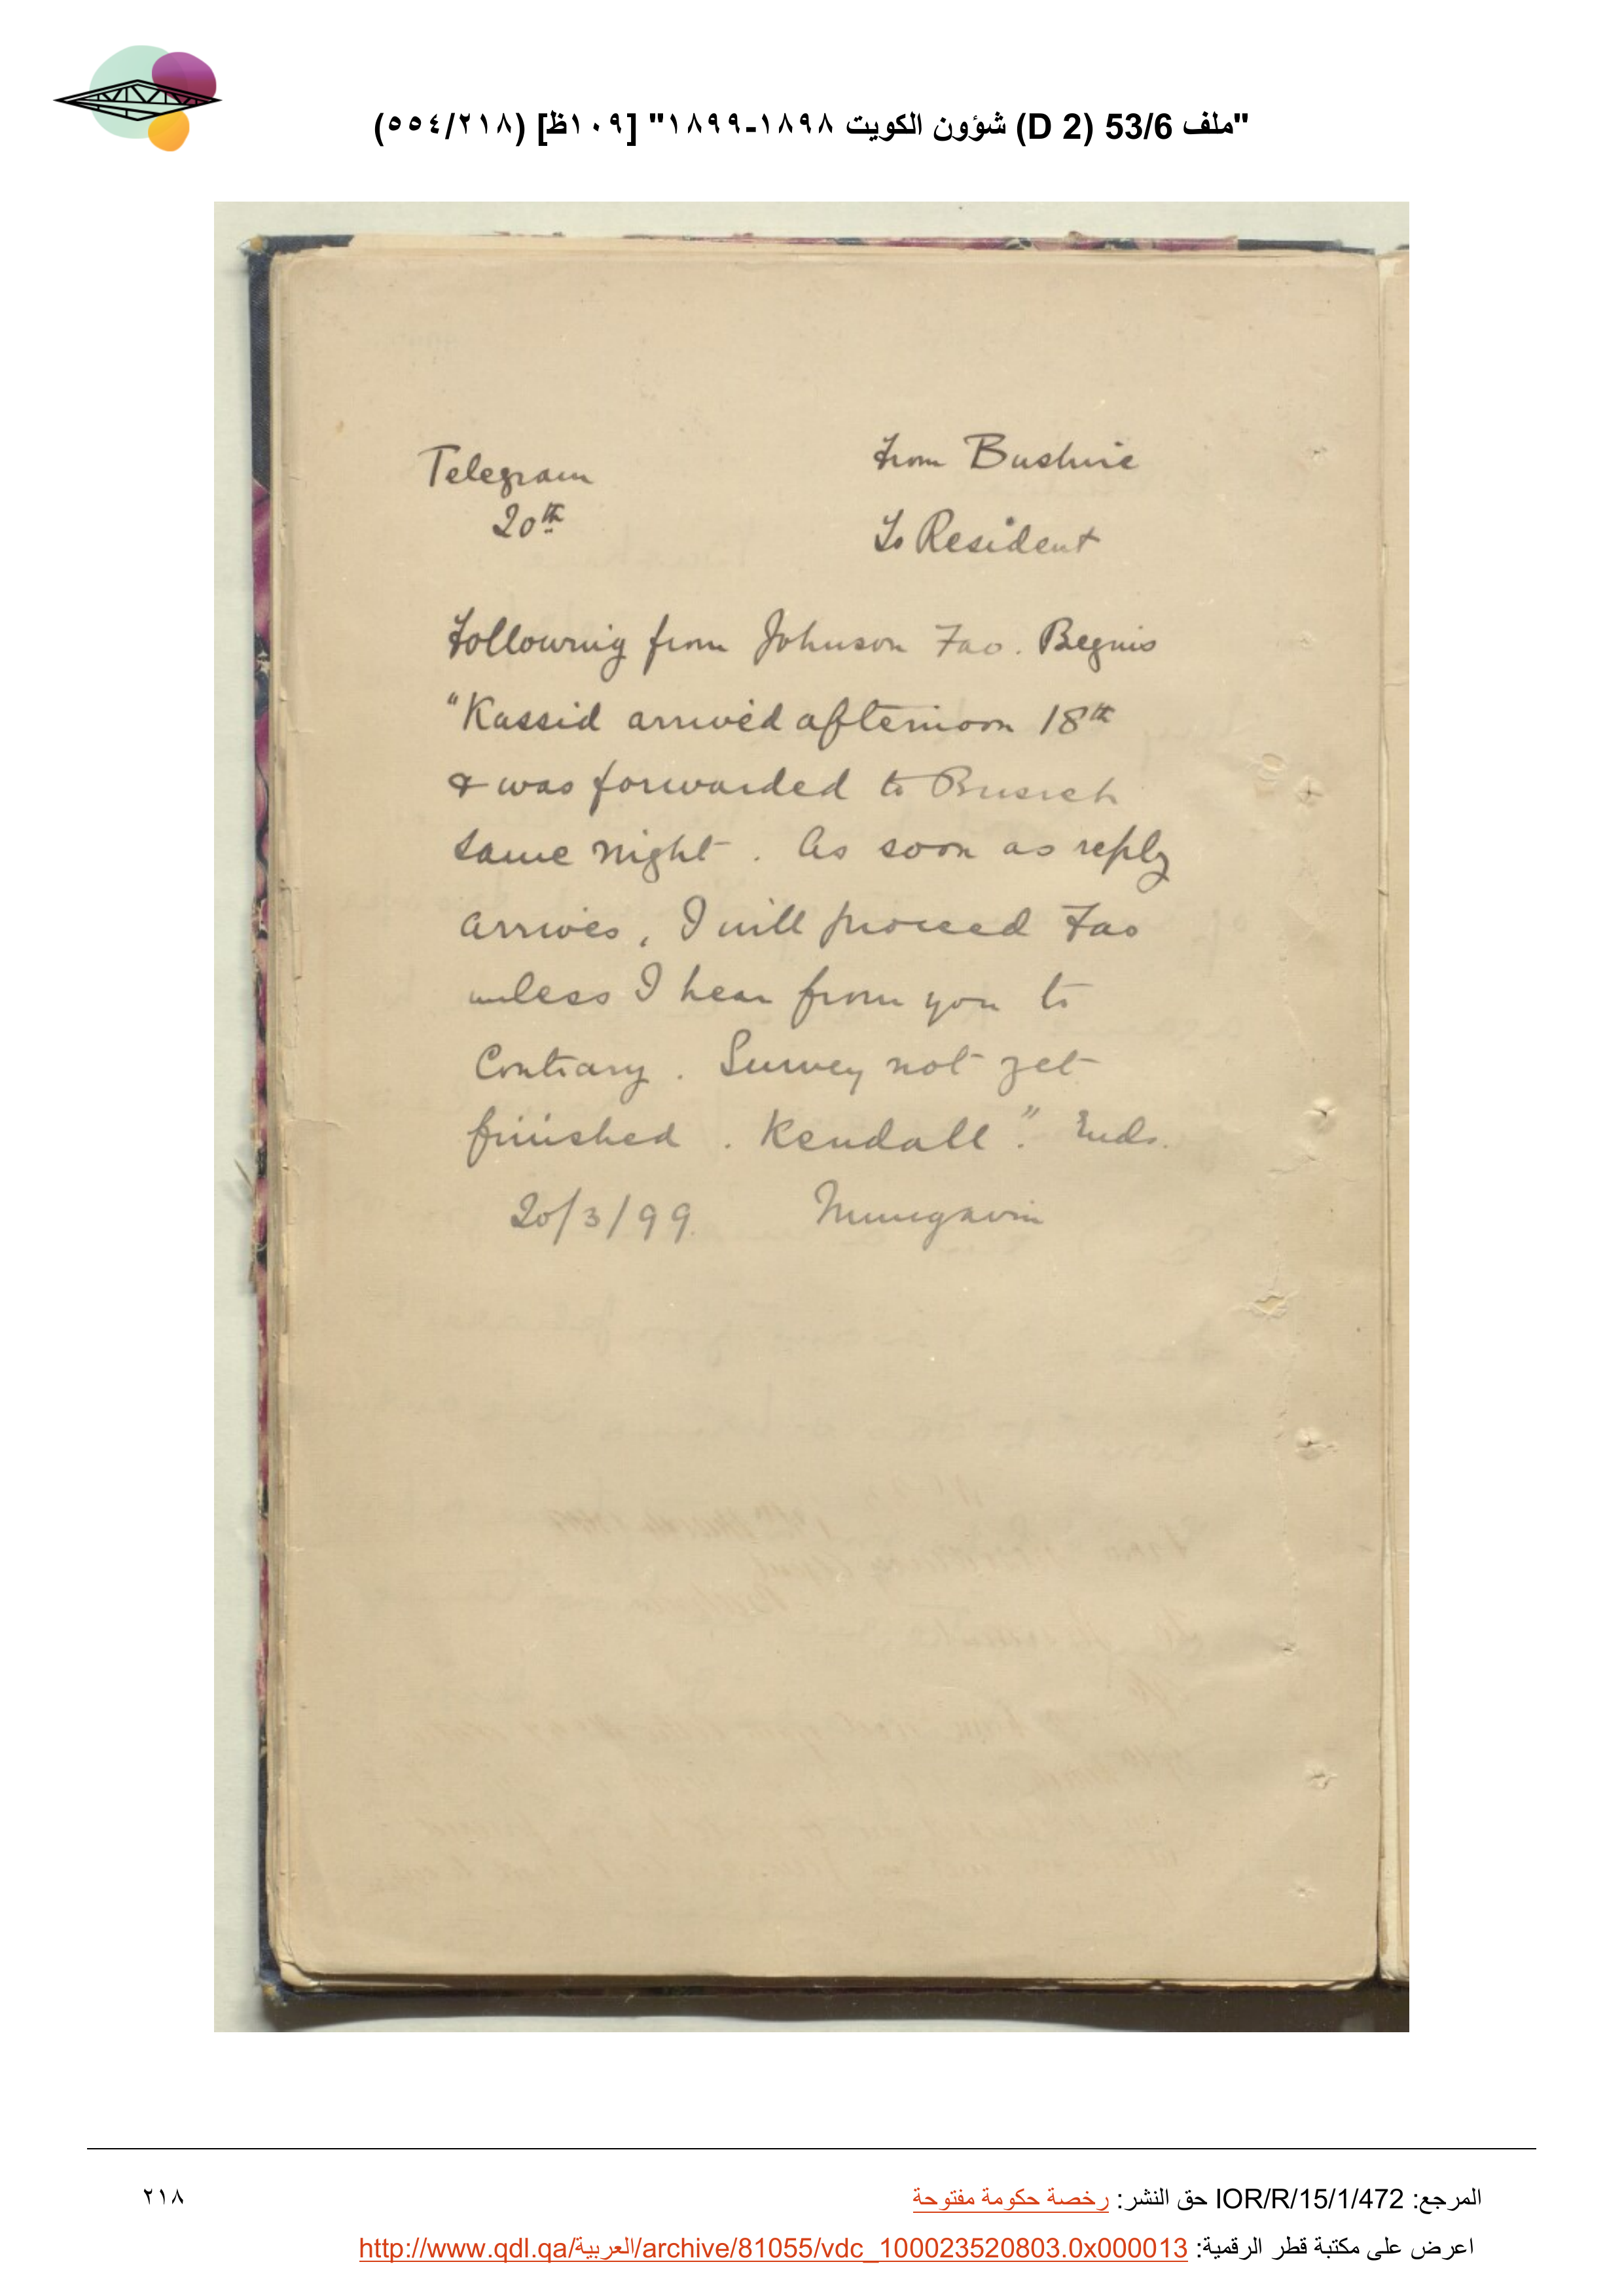 "ملف 53/6 (D 2) شؤون الكويت ١٨٩٨-١٨٩٩" [١٠٩ظ] (٢١٨/٥٥٤)
Telegram
20th
From Bushire
To Resident
Following from Johnson Fao. Begins
"Kassid arrived afternoon 18th
& was forwarded to Busreh
same night. As soon as reply
arrives, I will proceed Fao
unless I hear from you to
Contrary. Survey not yet
finished. Kendall". Ends.
20/3/99. Mungavin
المرجع: IOR/R/15/1/472 حق النشر: رخصة حكومة مفتوحة
اعرض على مكتبة قطر الرقمية: http://www.qdl.qa/العربية/archive/81055/vdc_100023520803.0x000013
٢١٨